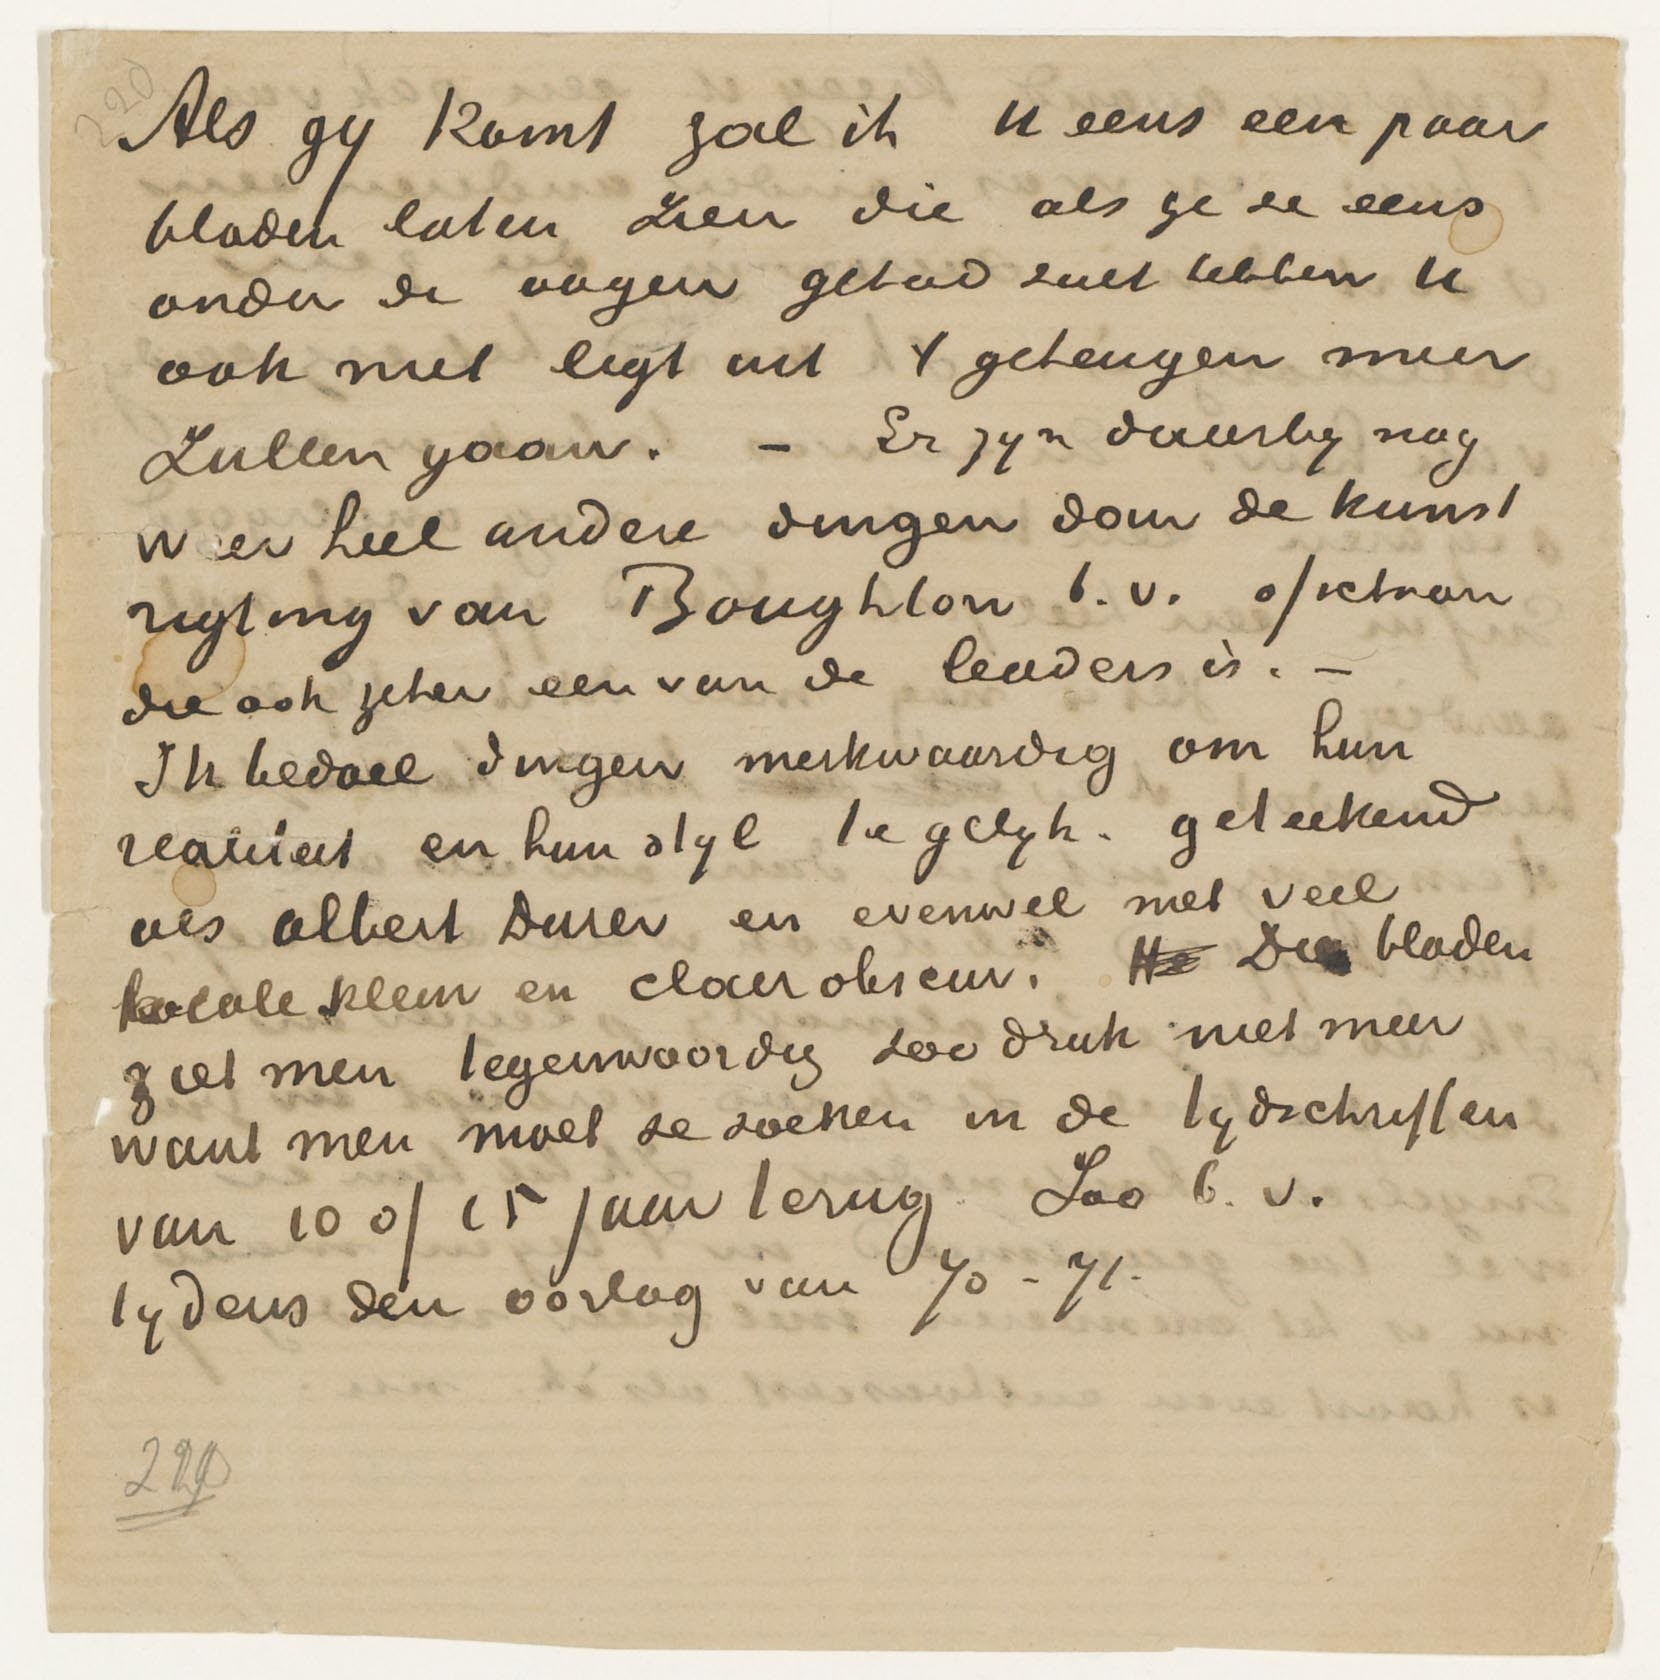 220
Als gy komt zal ik U eens een paar
bladen laten zien die als ge ze eens
onder de oogen gehad zult hebben U
ook niet ligt uit 't geheugen meer
zullen gaan. – Er zyn daarby nog
weer heel andere dingen dan de kunst
rigting van Boughton b.v. ofschoon
die ook zeker een van de leaders is. –
Ik bedoel dingen merkwaardig om hun
realiteit en hun styl te gelyk. geteekend
als Albert Durer en evenwel met veel
locale kleur en clair obscur. He Die bladen
ziet men tegenwoordig zoo druk niet meer
want men moet ze zoeken in de tydschriften
van 10 of 15 jaar terug. Zoo b.v.
tydens den oorlog van 70-71.